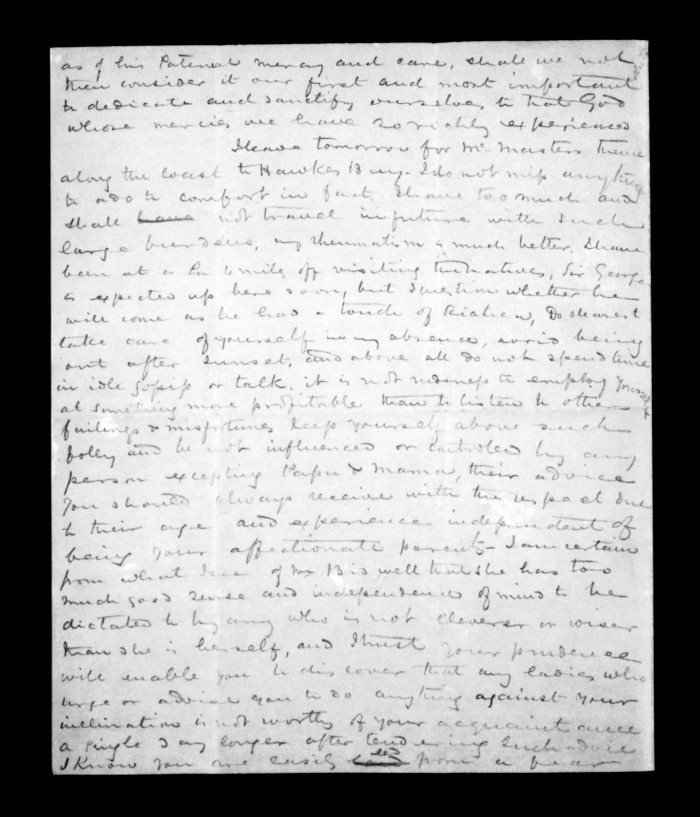 as of his Paternal mercy and care, shall we not
then consider it our first and most important
to dedicate and sanctify ourselves to that God
whose mercies we have so richly experienced
I leave tomorrow for Mr Masters thence
along the coast to Hawkes Bay. I do not miss anything
to add to comfort in fact I have too much and
shall have not travel in future with such
large burdens, my rheumatism is much better. I have
been at a Pa 6 miles off visiting the natives, Sir George
is expected up here soon, but I question whether he
will come as he has a touch of Sciatica, Do dearest
take care of yourself in my absence, avoid being
out after sunset, and above all do not spend time
in idle gossip or talk, it is not to employ yourself
at something more profitable than to listen to others
failings & misfortunes keep yourself above such
folley and be not influenced or controled by any
person excepting Papa & Mama, their advice
you should always receive with the respect due
to their age and experience independent of
being your affectionate parents - I am certain
from what I see of Mrs Bidwell that she has too
much good sense and independence of mind to be
dictated to by any who is not cleverer or wiser
than she is herself, and I trust your prudence
will enable you to discover that any ladies who
urge or advise you to do anything against your
inclination is not worthy of your acquaintance
a single day longer after tendering such advice
I know you are easily led from a fear